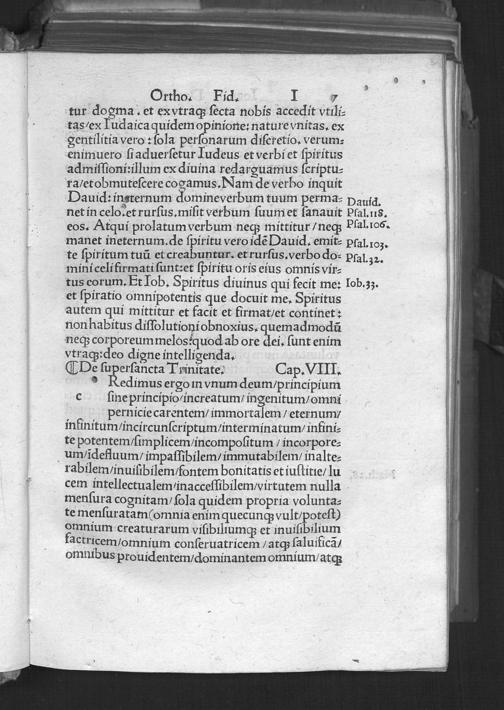 Ortho. Fid. I 7
tur dogma. et ex vtraqꝫ secta nobis accedit vtili⸗
tas/ex Iudaica quidem opinione: nature vnitas. ex
gentilitia vero: sola personarum discretio. verum⸗
enimuero si aduersetur Iudeus et verbi et spiritus
admissioni: illum ex diuina redarguamus scriptu⸗
ra/et obmutescere cogamus. Nam de verbo inquit
Dauid: in eternum domine verbum tuum perma⸗
net in celo. et rursus. misit verbum suum et sanauit
eos. Atqui prolatum verbum neqꝫ mittitur/neqꝫ
manet in eternum. de spiritu vero idē Dauid. emit⸗
te spiritum tuū et creabuntur. et rursus. verbo do⸗
mini celi firmati sunt: et spiritu oris eius omnis vir⸗
tus eorum. Et Iob. Spiritus diuinus qui fecit me:
et spiratio omnipotentis que docuit me. Spiritus
autem qui mittitur et facit et firmat/et continet:
non habitus dissolutioni obnoxius. quemadmodū
neqꝫ corporeum melos: quod ab ore dei. sunt enim
vtraqꝫ: deo digne intelligenda.
Dauid.
Psal.118.
Psal.106.
Psal.103.
Psal.32.
Iob.33.
⸿De supersancta Trinitate. Cap.VIII.
c Redimus ergo in vnum deum/principium
sine principio/increatum/ingenitum/omni
pernicie carentem/immortalem/eternum/
infinitum/incircunscriptum/interminatum/infini⸗
te potentem/simplicem/incompositum/incorpore⸗
um/idefluum/impassibilem/immutabilem/inalte⸗
rabilem/inuisibilem/fontem bonitatis et iustitie/lu
cem intellectualem/inaccessibilem/virtutem nulla
mensura cognitam/sola quidem propria volunta⸗
te mensuratam(omnia enim quecunqꝫ vult/potest)
omnium creaturarum visibiliumqꝫ et inuisibilium
factricem/omnium conseruatricem/atqꝫ saluificā/
omnibus prouidentem/dominantem omnium/atqꝫ